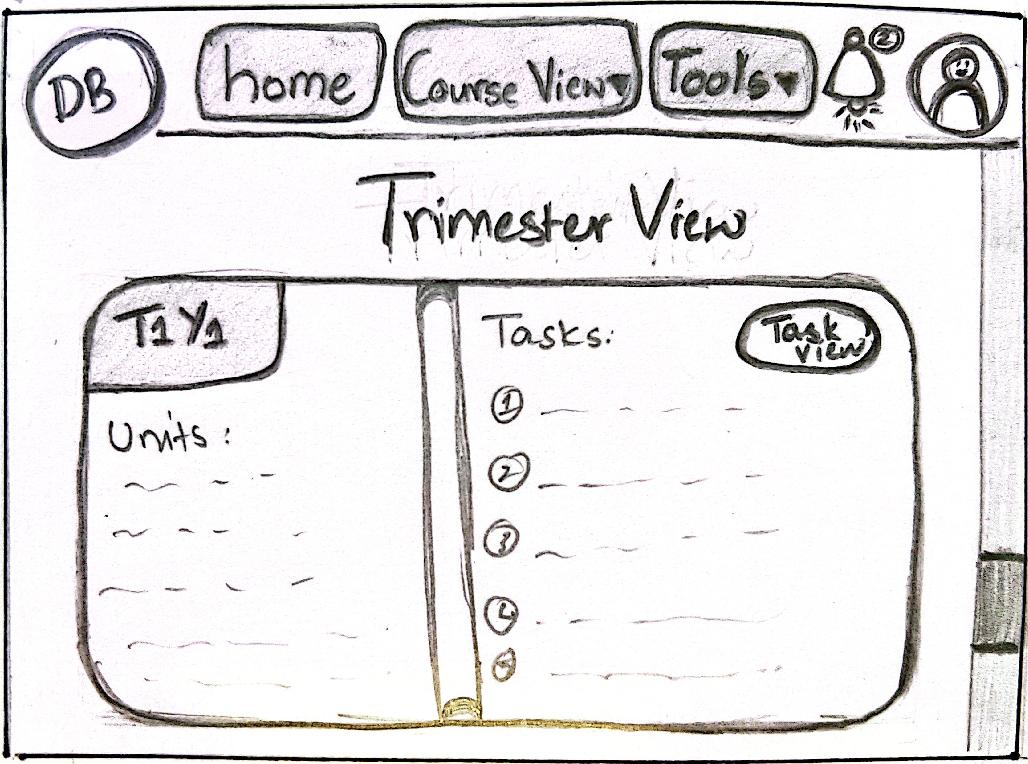 DB
home
Course View▾
Tools▾
2
Trimester View
T1 Y1
Units:
Tasks:
Task
view
1
2
3
4
5